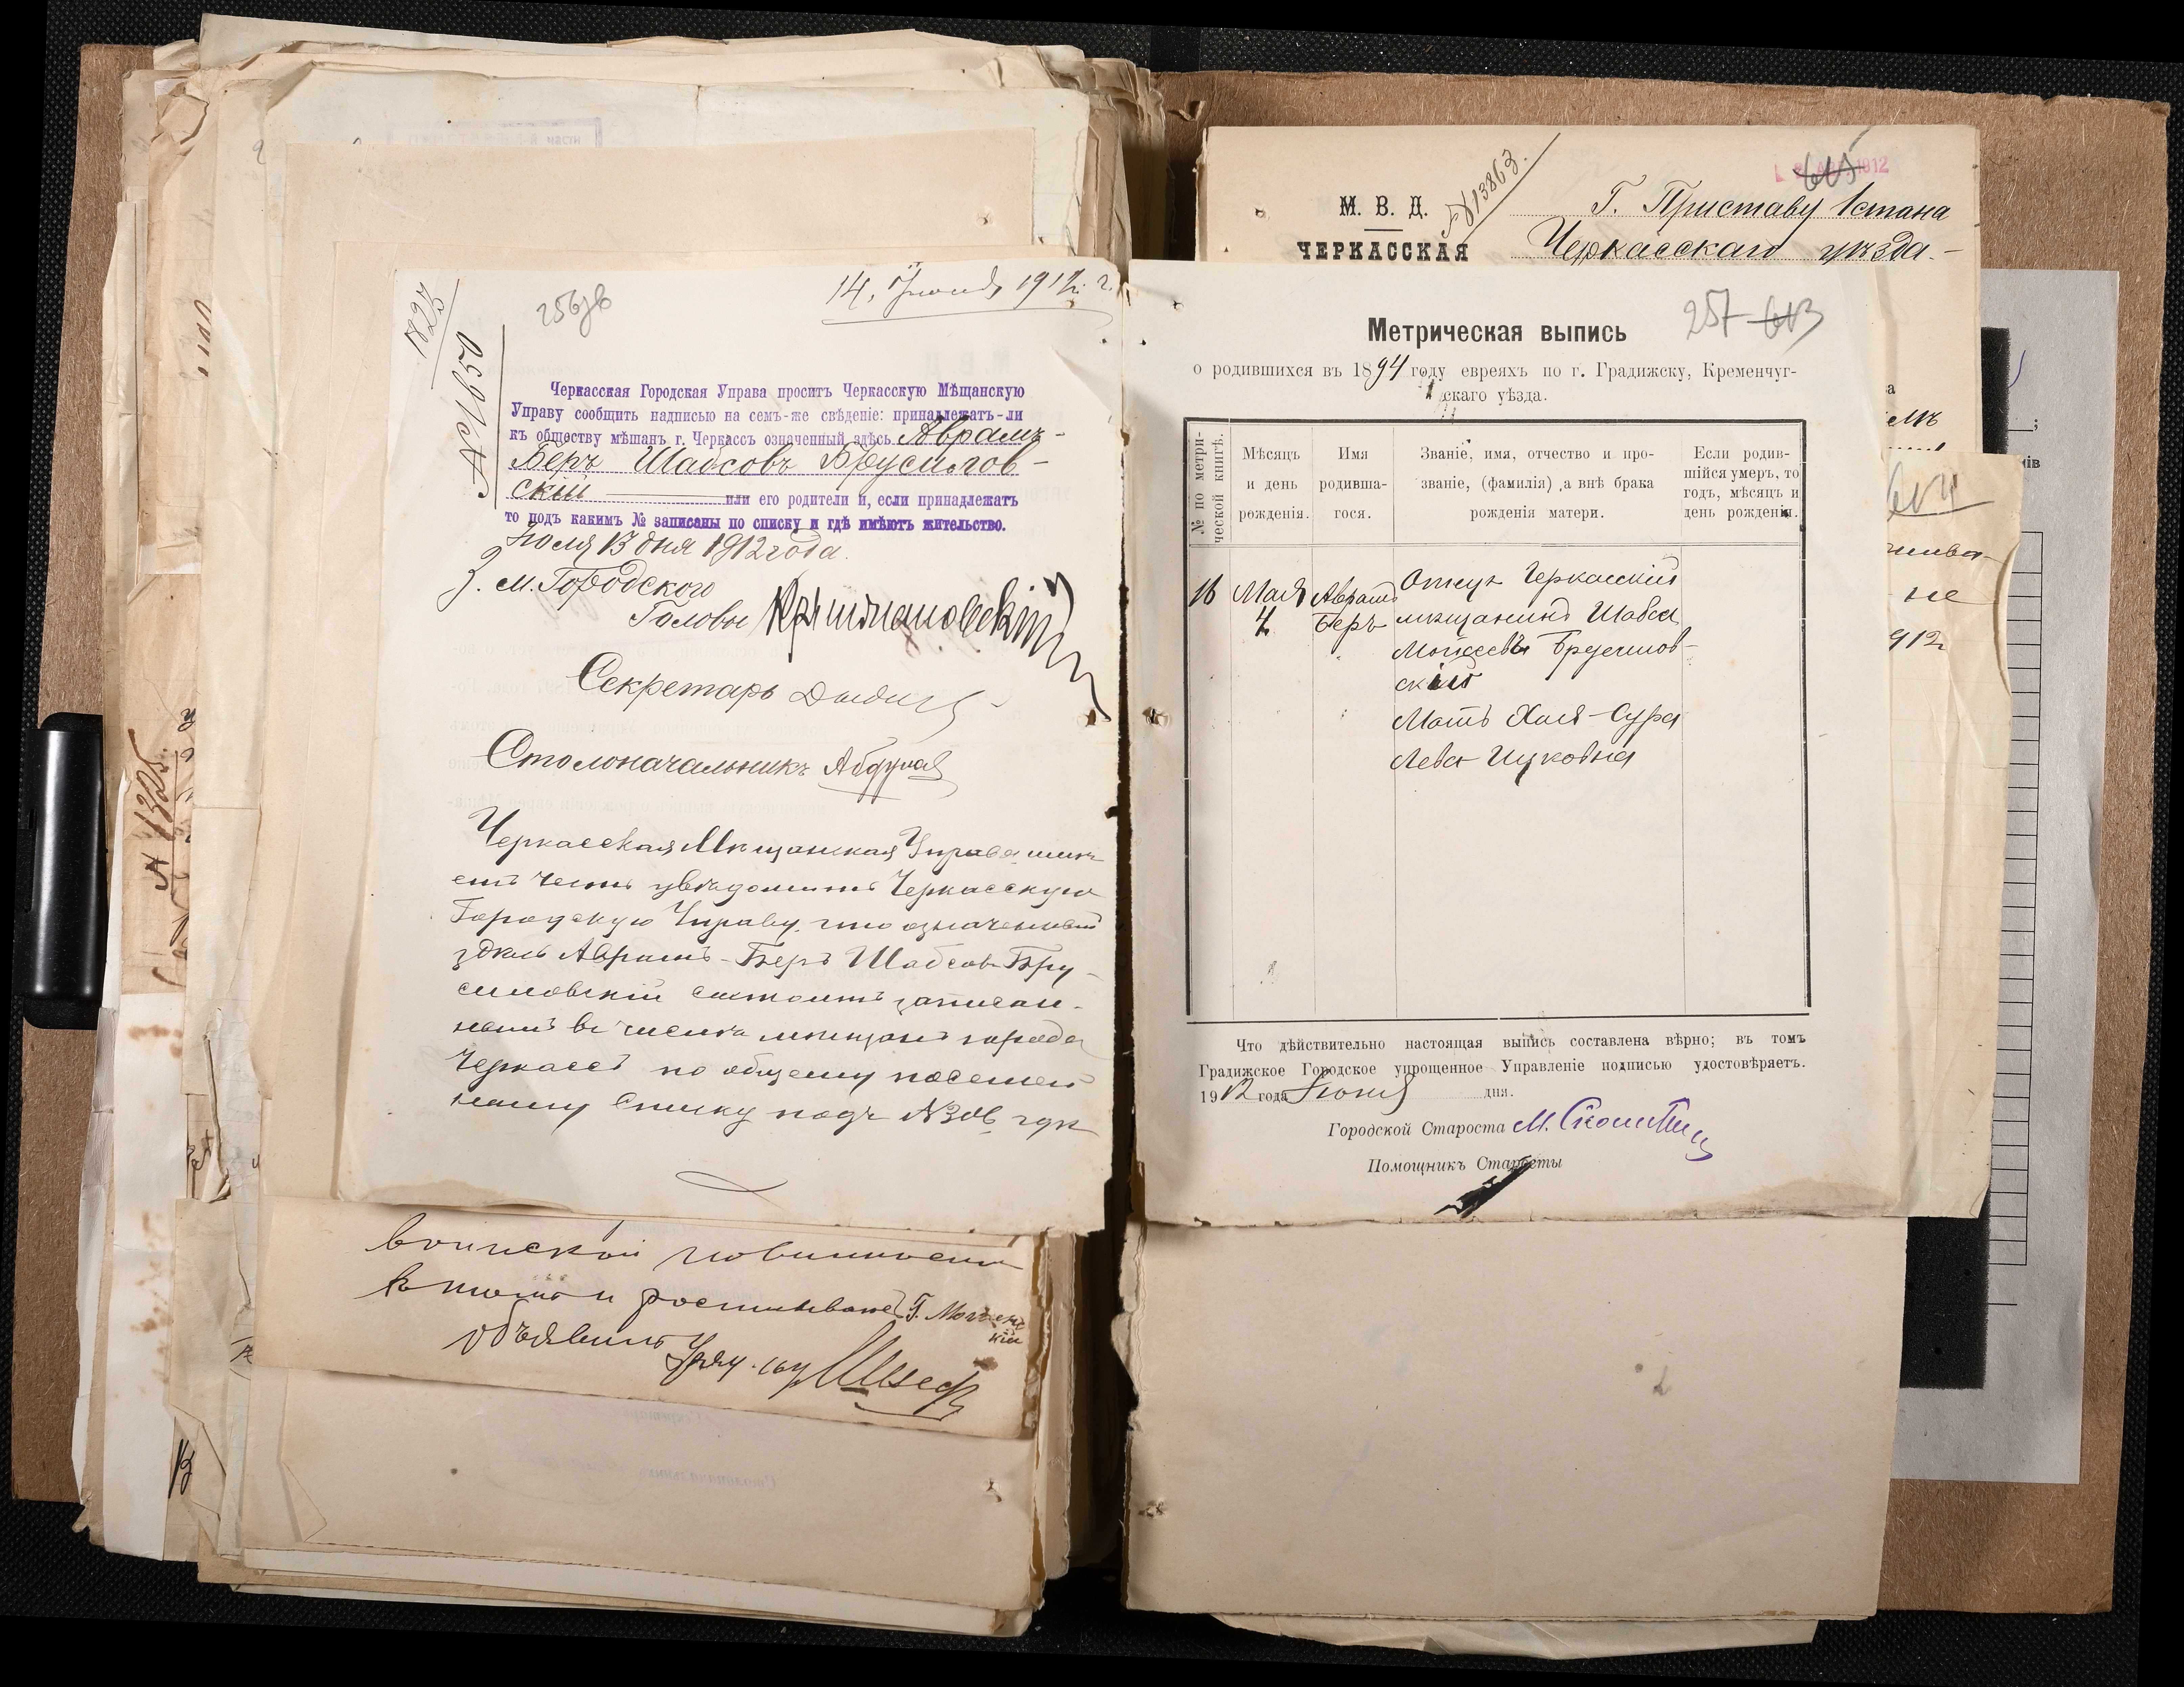 1823
№ 1850
256
14. Іюля 1912 г.
Черкасская Городская Управа проситъ Черкасскую Мѣщанскую
Управу сообщить надписью на семъ-же свѣденіе: принадлежатъ-ли
къ обществу мѣщанъ г. Черкассъ означенный здѣсь Аврамъ-
Беръ Шабсовъ Брусилов-
скій или его родители и, если принадлежатъ
то подъ какимъ № записаны по списку и гдѣ имѣютъ жительство.
Іюля 13 дня 1912 года.
З. м. Городского
Головы
Секретарь
Столоначальникъ
Черкасская Мѣщанская Управа имѣ-
етъ честь увѣдомить Черкасскую
Городскую Управу, что означенный
здѣсь Аврамъ-Беръ Шабсовъ Бру-
силовскій состоитъ записан-
нымъ въ числѣ мѣщанъ города
Черкассъ по общему посемей
ному списку подъ №306 гдѣ
воинской повинности
объявилъ
№ 1325
М. В. Д.
ЧЕРКАССКАЯ
№13863.
1912
615
Г. Приставу 1 стана
Черкасскаго уѣзда.-
257 613
Метрическая выпись
о родившихся въ 1894 году евреяхъ по г. Градижску, Кременчуг-
скаго уѣзда.
№ по метри-
ческой книгѣ.
Мѣсяцъ
и день
рожденія.
Имя
родивша-
гося.
Званіе, имя, отчество и про-
званіе, (фамилія) а внѣ брака
рожденія матери.
Если родив-
шійся умеръ, то
годъ, мѣсяцъ и
день рожденія.
16 Мая 4 Аврамъ Беръ
Отецъ Черкасскій
мѣщанинъ Шабса
Моисеевъ Брусилов-
скій
Мать Хая-Сура
Лева Ицковна
614
912
Что дѣйствительно настоящая выпись составлена вѣрно; въ томъ
Градижское Городское упрощенное Управленіе подписью удостовѣряетъ.
1912 года Іюня дня.
Городской Староста
Помощникъ Старосты